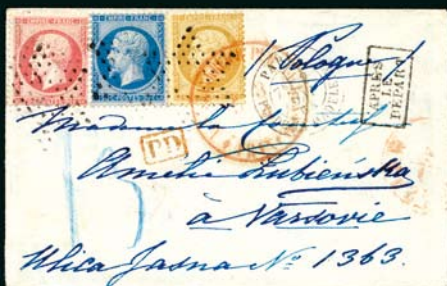 EMPIRE FRANC. EMPIRE FRANC. EMPIRE FRANC.
/ Pologne /
APRÈS
LE
DÉPART
Madame la
P.D.
Amélie Łubieńska
à Varsovie
Ulica Jasna No 1363.